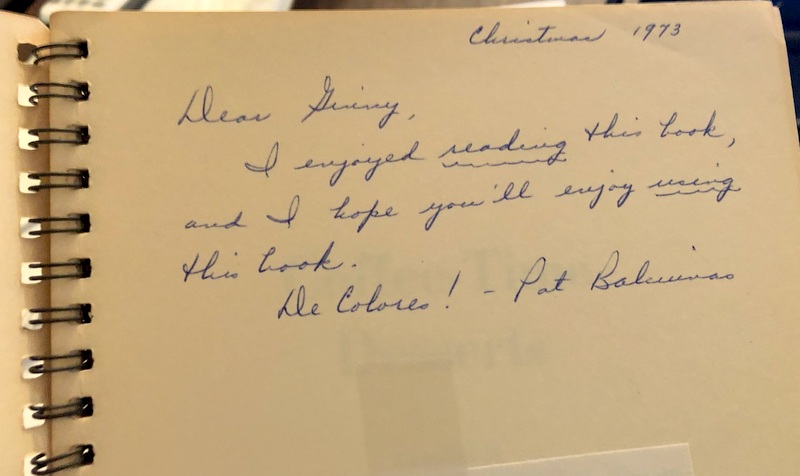 Christmas 1973
Dear Ginny,
I enjoyed reading this book,
and I hope you'll enjoy using
this book.
De Colores! - Pat